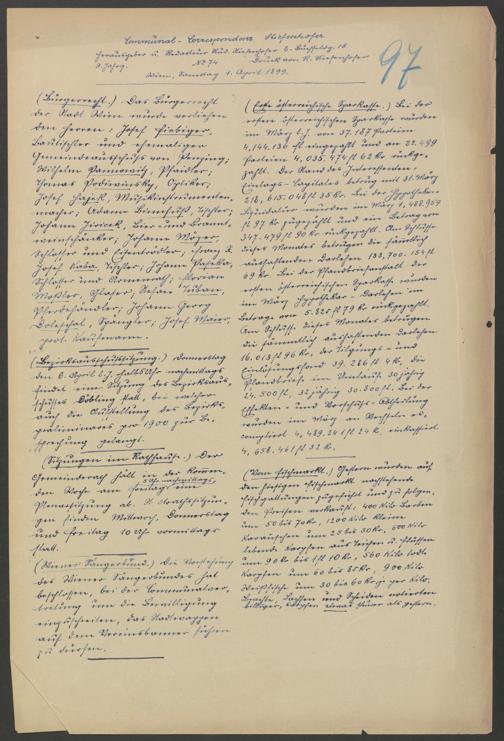 Communal-Correspondenz Stiefenhofer
Herausgeber u. Redacteur Rud. Stiefenhofer
9. Jahrg. No 74 Druck von R. Stiefenhofer
Wien, Samstag 1. April 1899.
97
(Bürgerrecht.) Das Bürgerrecht
der Stadt Wien wurde verliehen
den Herren: Josef Fiebiger,
Bautischler und ehemaliger
Gemeindeausschuss von Penzing;
Wilhelm Pannowitz, Pfaidler;
Thomas Podiwinsky, Optiker;
Josef Hajek, Musikinstrumenten-
macher; Adam Birnstuß, Tischler;
Johann Jiricek, Bier- und Brannt-
weinschänker, Johann Mayer,
Schlosser und Eisenhändler, Franz X.
Josef Kaba, Tischler; Johann Paseka,
Schlosser und Florian
Mossler, Glaser;
Pferdehändler; Johann Georg
Doleschal, Spängler, Josef Maier,
prot. Kaufmann.
(Bezirksausschußsitzung.) Donnerstag
den 6. April l. J. nachmittags
findet eine Sitzung des Bezirksaus-
schusses Döbling statt, bei welcher
auch die Aufstellung des Bezirks-
präliminares pro 1900 zur Be-
sprechung gelangt.
(Sitzungen im Rathhause.) Der
Gemeinderath hält in der kommen-
den Woche am Freitag 5 Uhr nachmittags eine
Plenarsitzung ab. Stadtrathssitzun-
gen finden Mittwoch, Donnerstag
und Freitag 10 Uhr vormittags
statt.
(Wiener Sängerbund.) Die Vorstehung
des Wiener Sängerbundes hat
beschlossen, bei der Communalver-
tretung um die Bewilligung
einzuschreiten, das Stadtwappen
auf dem Vereinsbanner führen
zu dürfen.
(Erste österreichische Sparkasse.) Bei der
ersten österreichischen Sparkasse wurden
im März l. J. von 37.187 Parteien
4,144.130 fl eingezahlt und an 22.499
Parteien 4,035.474 fl 62 kr rückge-
zahlt. Der Stand des Interessenten-
Einlags-Capitales betrug mit 31. März
218,615.048 fl 35 kr. Bei der Hypotheken-
Liquidatur wurden im März 1,488.959
fl 97 kr zugezählt und ein Betrag von
347.479 fl 90 kr rückgezahlt. Am Schlusse
dieses Monates betrugen die sämtlich
aushaftenden Darlehen
69 kr. Bei der Pfandbriefanstalt der
ersten österreichischen Sparkasse wurden
im März Hypothekar-Darlehen im
Betrage von 5.825 fl 79 kr rückgezahlt.
Am Schlusse dieses Monates betrugen
die sämmtlich aushaftenden Darlehen
16,013 fl 96 kr, der Tilgungs- und
Einlösungsfond 39.286 fl 4 kr, die
Pfandbriefe im Umlauf 50jährig
24.500 fl, 32jährig 30.800 fl. Bei der
Effekten- und Vorschuß-Abtheilung
wurden im März an Wechseln es-
comptirt 4,489.241 fl 24 kr, einkassirt
4,658.461 fl 32 kr.
(Vom Fischmarkt.) Gestern wurden auf
den hiesigen Fischmarkt nachstehende
Fischgattungen zugeführt und zu folgen-
den Preisen verkauft: 400 Kilo Barben
um 50 bis 70 kr, 1200 Kilo kleine
Karauschen um 25 bis 30 kr, 500 Kilo
lebende Karpfen aus Teichen u. Flüssen
um 90 kr bis 1 fl 10 kr, 560 Kilo todte
Karpfen um 60 bis 85 kr, 900 Kilo
Weißfische um 30 bis 60 kr per Kilo.
Hechte, Lachsen und Schaiden notierten
billiger, Karpfen etwas theurer als gestern.